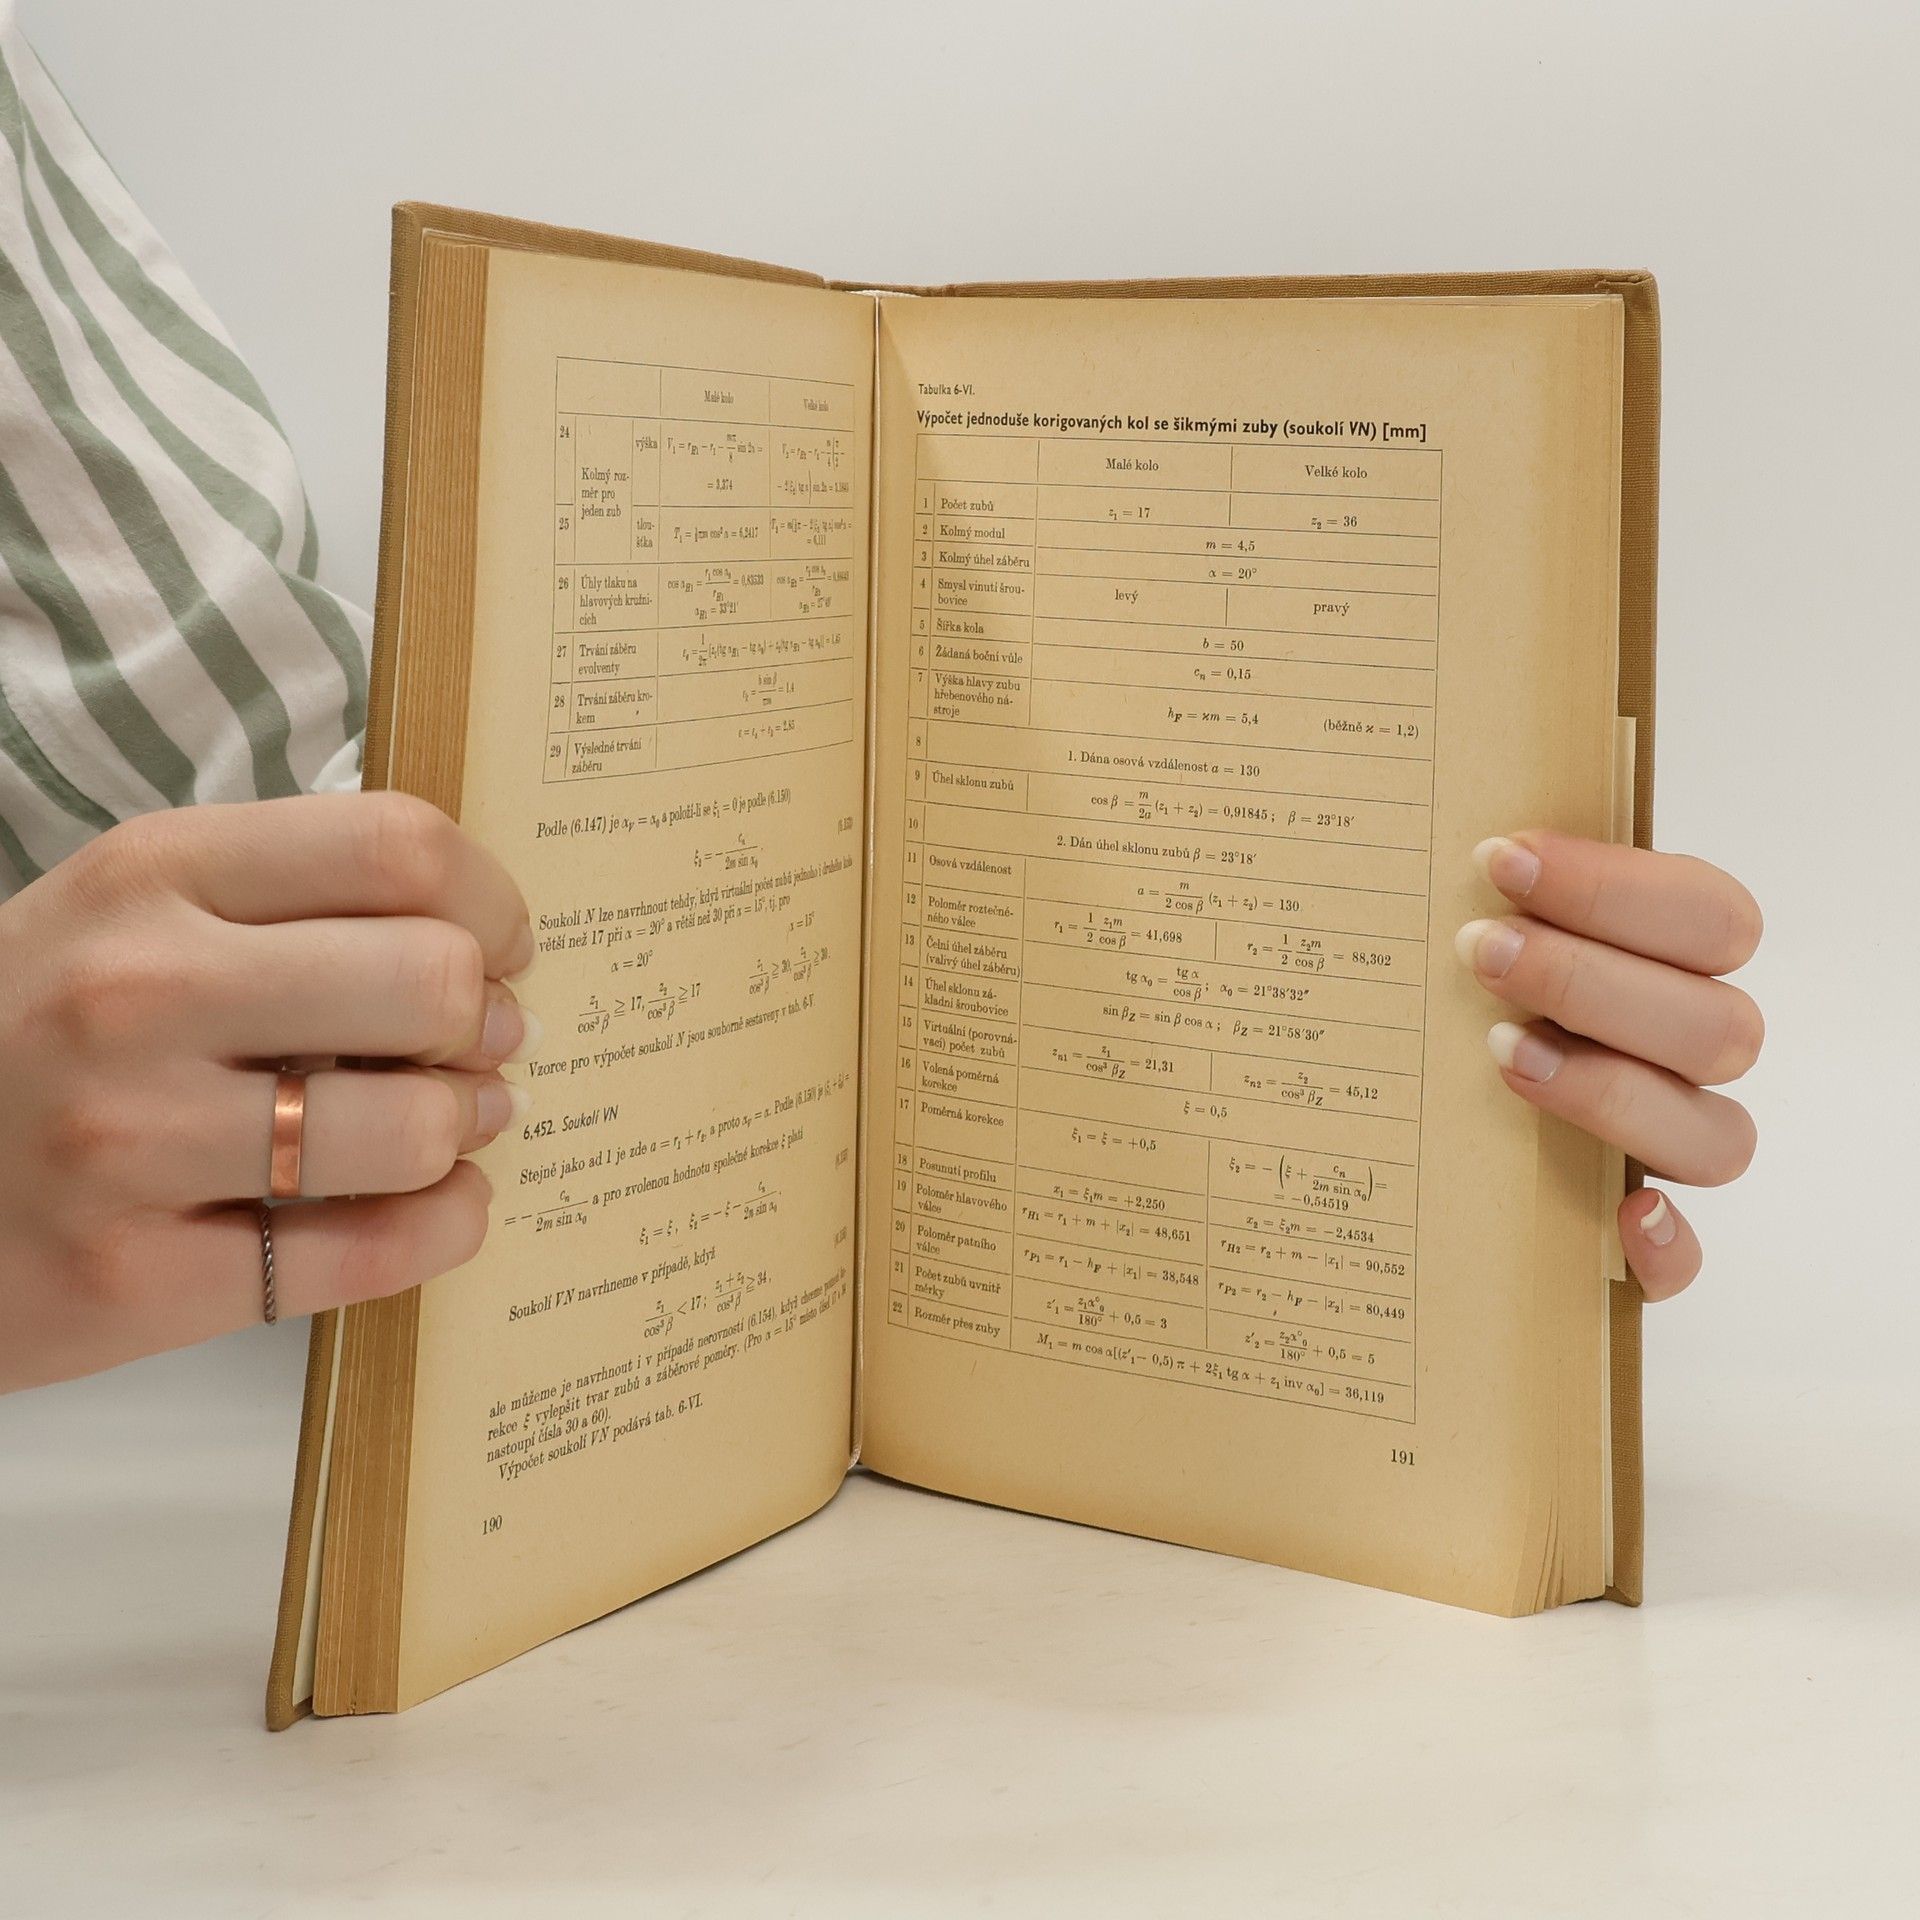 Malé kolo Velké kolo
24 Kolmý roz-
měr pro
jeden zub
výška
= 3,374
25 tlou-
štka
26 Úhly tlaku na
hlavových kružni-
cích
27 Trvání záběru
evolventy
28 Trvání záběru kro-
kem
29 Výsledné trvání
záběru
Podle (6.147) je αᵥ = α₀ a položí-li se ξ₁ = 0 je podle (6.150)
ξ₂ = − cₙ / 2m sin α₀
Soukolí N lze navrhnout tehdy, když virtuální počet zubů jednoho i druhého kola
větší než 17 při α = 20° a větší než 30 při α = 15°, tj. pro
α = 20° α = 15°
z₁ / cos³ β ≧ 17, z₂ / cos³ β ≧ 17 z₁ / cos³ β ≧ 30, z₂ / cos³ β ≧ 30.
Vzorce pro výpočet soukolí N jsou souborně sestaveny v tab. 6-V
6,452. Soukolí VN
Stejně jako ad 1 je zde a = r₁ + r₂, a proto αᵥ = α. Podle (6.150) je (ξ₁ + ξ₂) =
= − cₙ / 2m sin α₀ a pro zvolenou hodnotu společné korekce ξ platí
ξ₁ = ξ, ξ₂ = − ξ − cₙ / 2m sin α₀,
Soukolí VN navrhneme v případě, když
z₁ / cos³ β < 17; z₁ + z₂ / cos³ β ≧ 34,
ale můžeme je navrhnout i v případě nerovnosti (6.154), když chceme pomocí ko-
rekce ξ vylepšit tvar zubů a záběrové poměry. (Pro α = 15° místo čísel 17 a 34
nastoupí čísla 30 a 60).
Výpočet soukolí VN podává tab. 6-VI.
190
Tabulka 6-VI.
Výpočet jednoduše korigovaných kol se šikmými zuby (soukolí VN) [mm]
Malé kolo Velké kolo
1 Počet zubů z₁ = 17 z₂ = 36
2 Kolmý modul m = 4,5
3 Kolmý úhel záběru α = 20°
4 Smysl vinutí šrou-
bovice levý pravý
5 Šířka kola b = 50
6 Žádaná boční vůle cₙ = 0,15
7 Výška hlavy zubu
hřebenového ná-
stroje h_F = ϰm = 5,4 (běžně ϰ = 1,2)
8 1. Dána osová vzdálenost a = 130
9 Úhel sklonu zubů cos β = m / 2a (z₁ + z₂) = 0,91845; β = 23°18′
10 2. Dán úhel sklonu zubů β = 23°18′
11 Osová vzdálenost a = m / 2 cos β (z₁ + z₂) = 130
12 Poloměr roztečné-
ného válce r₁ = 1/2 z₁m / cos β = 41,698 r₂ = 1/2 z₂m / cos β = 88,302
13 Čelní úhel záběru
(valivý úhel záběru) tg α₀ = tg α / cos β; α₀ = 21°38′32″
14 Úhel sklonu zá-
kladní šroubovice sin β_Z = sin β cos α; β_Z = 21°58′30″
15 Virtuální (porovná-
vací) počet zubů zₙ₁ = z₁ / cos³ β_Z = 21,31 zₙ₂ = z₂ / cos³ β_Z = 45,12
16 Volená poměrná
korekce ξ = 0,5
17 Poměrná korekce ξ₁ = ξ = +0,5 ξ₂ = − (ξ + cₙ / 2m sin α₀) =
= −0,54519
18 Posunutí profilu x₁ = ξ₁m = +2,250 x₂ = ξ₂m = −2,4534
19 Poloměr hlavového
válce r_H1 = r₁ + m + |x₂| = 48,651 r_H2 = r₂ + m − |x₁| = 90,552
20 Poloměr patního
válce r_P1 = r₁ − h_F + |x₁| = 38,548 r_P2 = r₂ − h_F − |x₂| = 80,449
21 Počet zubů uvnitř
měrky z′₁ = z₁α°₀ / 180° + 0,5 = 3 z′₂ = z₂α°₀ / 180° + 0,5 = 5
22 Rozměr přes zuby M₁ = m cos α[(z′₁ − 0,5) π + 2ξ₁ tg α + z₁ inv α₀] = 36,119
191